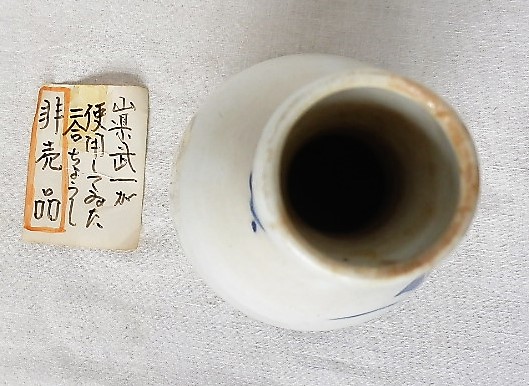 山県武一が
使用してゐた
二合ちょうし
非売品